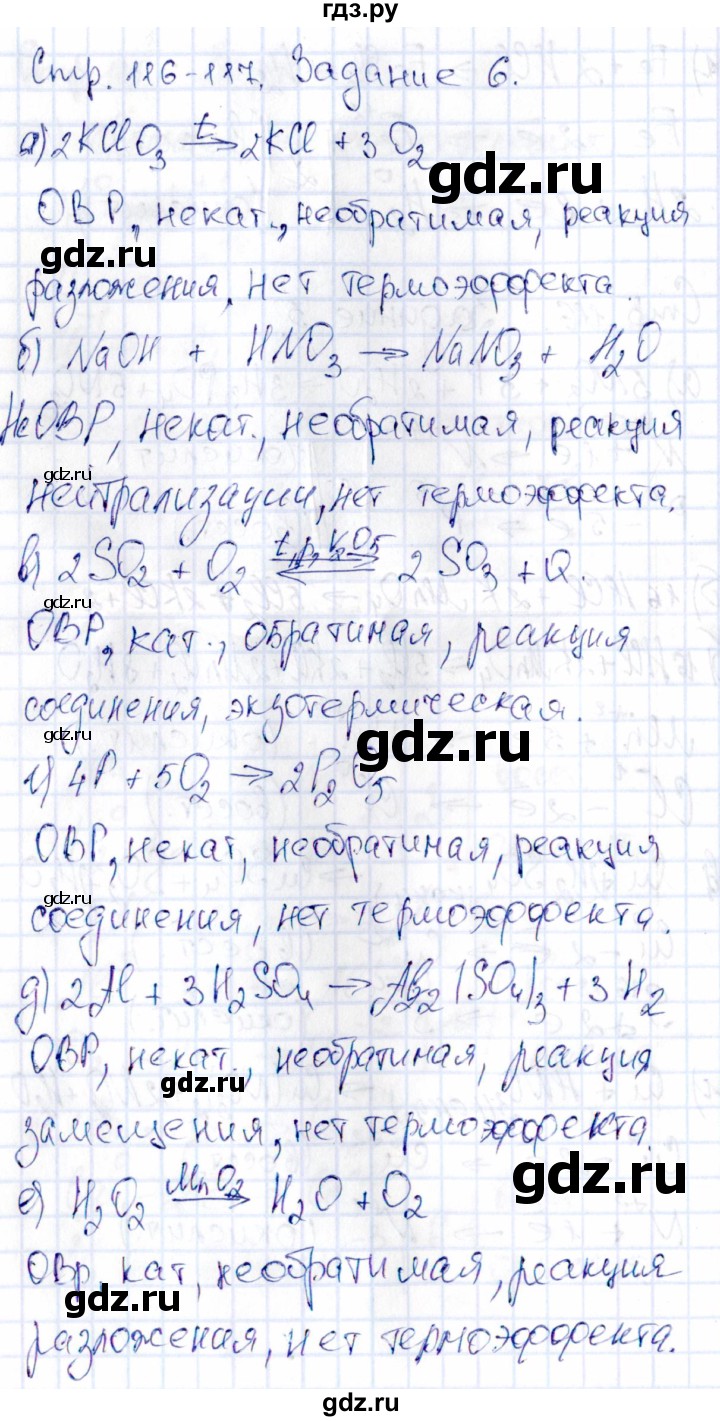 гдз.ру
Стр. 116-117. Задание 6.
а) 2KClO3 t→ 2KCl + 3O2
gdz.ru
ОВР, некат., необратимая, реакция
gdz.ru
разложения, нет термоэффекта.
б) NaOH + HNO3 → NaNO3 + H2O
НеОВР, некат., необратимая, реакция
gdz.ru
нейтрализации, нет термоэффекта.
в) 2SO2 + O2 t,p,V2O5 ⇄ 2SO3 + Q.
ОВР, кат., обратимая, реакция
соединения, экзотермическая.
gdz.ru
gdz.ru
г) 4P + 5O2 → 2P2O5
ОВР, некат, необратимая, реакция
gdz.ru
соединения, нет термоэффекта.
д) 2Al + 3H2SO4 → Al2(SO4)3 + 3H2
ОВР, некат., необратимая, реакция
gdz.ru
замещения, нет термоэффекта.
gdz.ru
е) H2O2 MnO2→ H2O + O2
ОВр, кат, необратимая, реакция
gdz.ru
разложения, нет термоэффекта.
gdz.ru